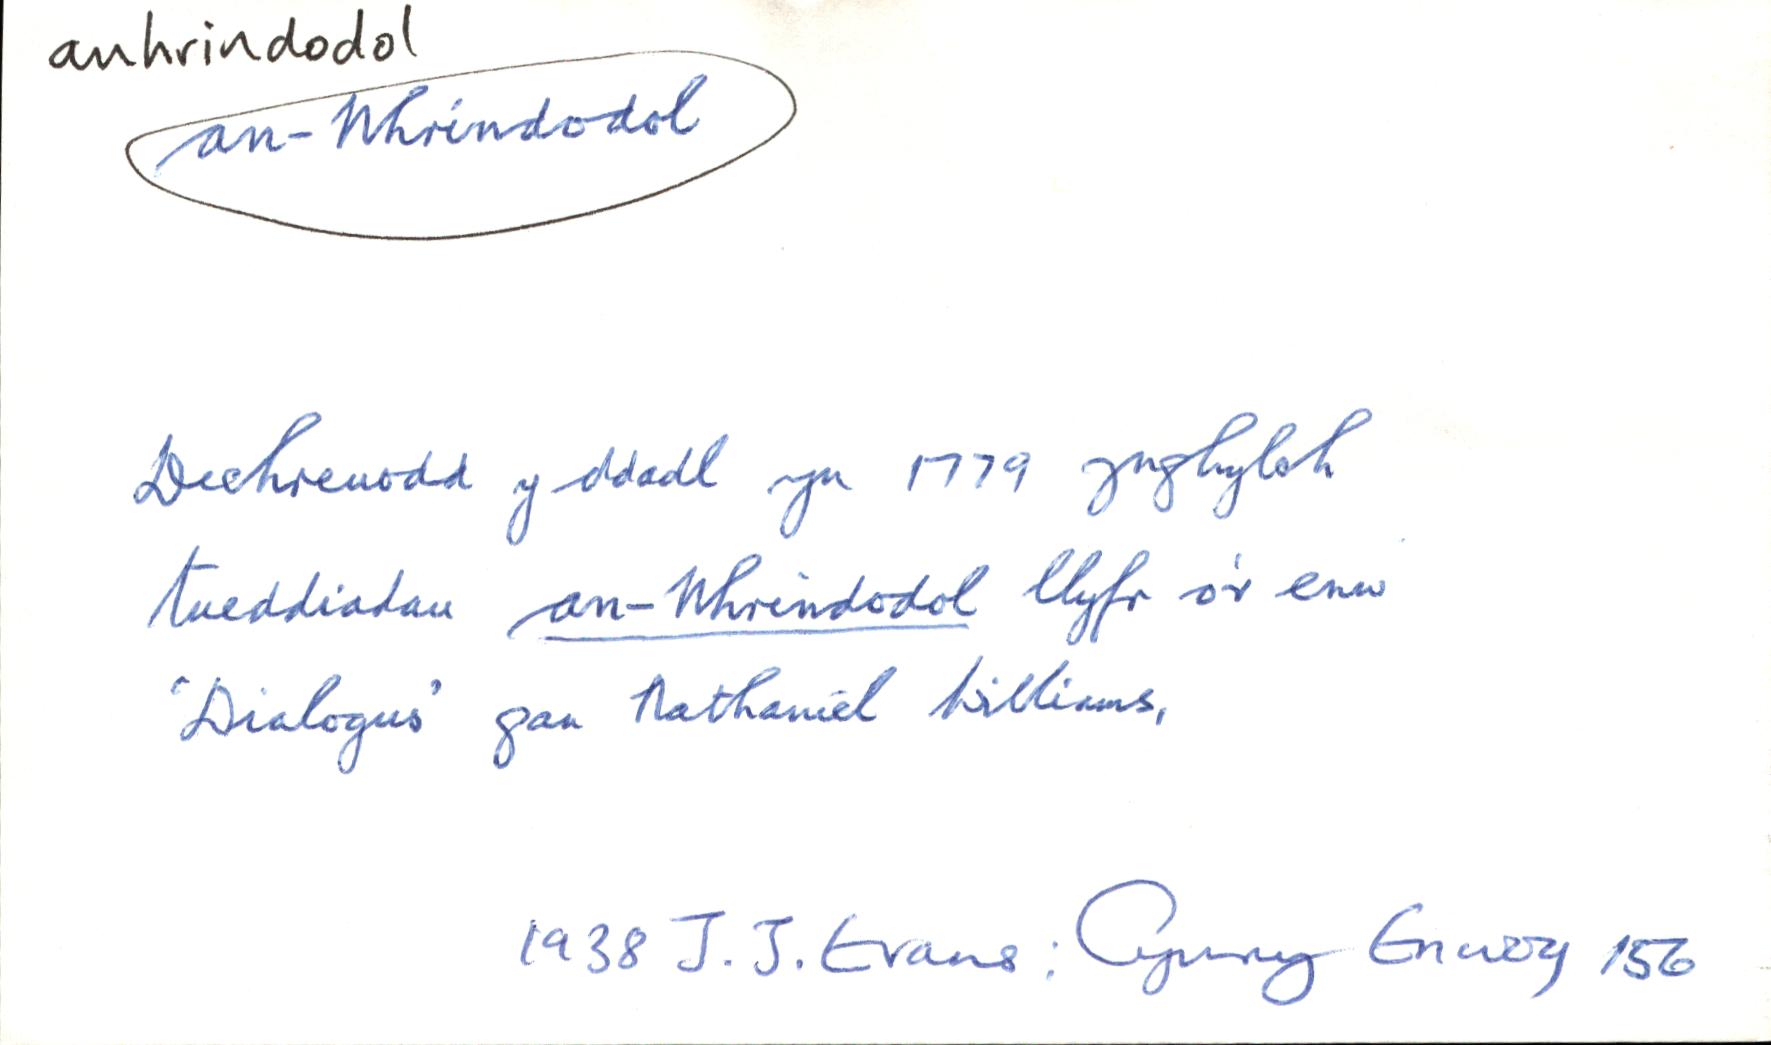 anhrindodol
an-Nhrindodol
Dechreuodd y ddadl yn 1779 ynghylch
tueddiadau an-Nhrindodol llyfr o'r enw
'Dialogus' gan Nathaniel Williams,
1938 J. J. Evans: Cymry Enwog 156